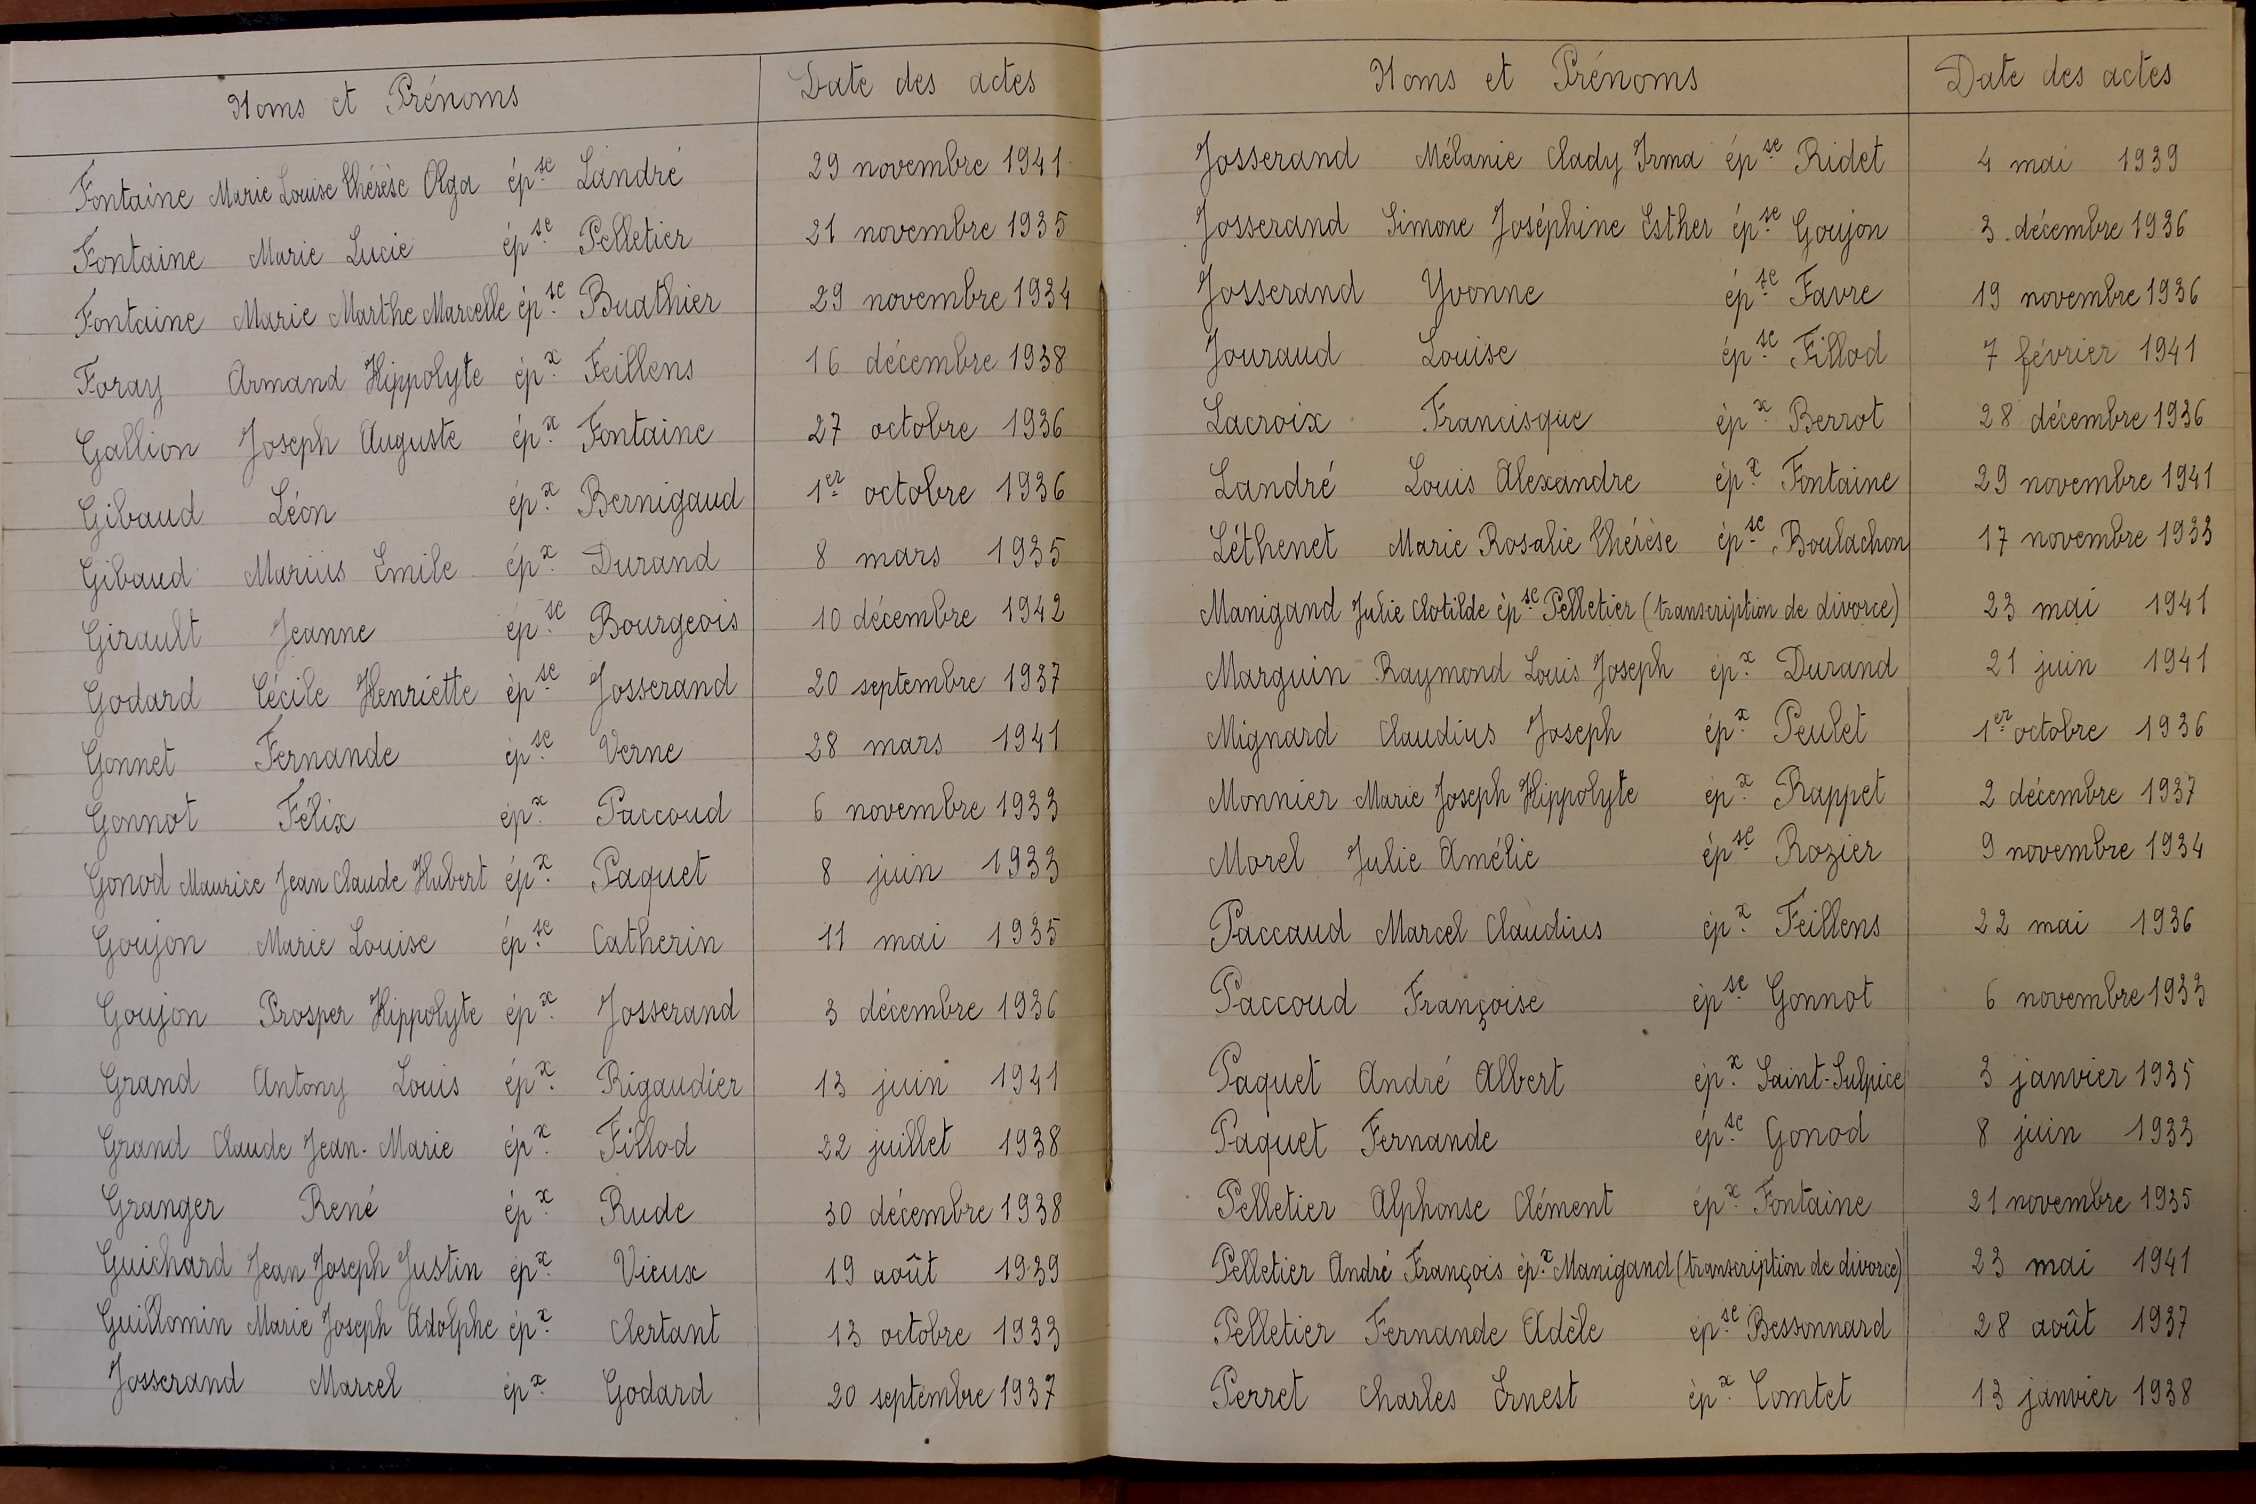 Noms et Prénoms Date des actes
Fontaine Marie Louise Thérèse Olga épse Landré 29 novembre 1941
Fontaine Marie Lucie épse Pelletier 21 novembre 1935
Fontaine Marie Marthe Marcelle épse Buathier 29 novembre 1934
Foray Armand Hippolyte épx Feillens 16 décembre 1938
Gallion Joseph Auguste épx Fontaine 27 octobre 1936
Gibaud Léon épx Bernigaud 1er octobre 1936
Gibaud Marius Emile épx Durand 8 mars 1935
Girault Jeanne épse Bourgeois 10 décembre 1942
Godard Cécile Henriette épse Josserand 20 septembre 1937
Gonnet Fernande épse Verne 28 mars 1941
Gonnot Félix épx Paccoud 6 novembre 1933
Gonod Maurice Jean Claude Hubert épx Paquet 8 juin 1933
Goujon Marie Louise épse Catherin 11 mai 1935
Goujon Prosper Hippolyte épx Josserand 3 décembre 1936
Grand Antony Louis épx Rigaudier 13 juin 1941
Grand Claude Jean-Marie épx Fillod 22 juillet 1938
Granger René épx Rude 30 décembre 1938
Guichard Jean Joseph Justin épx Vieux 19 août 1939
Guillomin Marie Joseph Adolphe épx Clertant 13 octobre 1933
Josserand Marcel épx Godard 20 septembre 1937
Noms et Prénoms Date des actes
Josserand Mélanie Clady Irma épse Ridet 4 mai 1939
Josserand Simone Joséphine Esther épse Goujon 3 décembre 1936
Josserand Yvonne épse Favre 19 novembre 1936
Jouraud Louise épse Fillod 7 février 1941
Lacroix Francisque épx Berrot 28 décembre 1936
Landré Louis Alexandre épx Fontaine 29 novembre 1941
Léthenet Marie Rosalie Thérèse épse Boulachon 17 novembre 1933
Manigand Julie Clotilde épse Pelletier (transcription de divorce) 23 mai 1941
Marguin Raymond Louis Joseph épx Durand 21 juin 1941
Mignard Claudius Joseph épx Peulet 1er octobre 1936
Monnier Marie Joseph Hippolyte épx Rappet 2 décembre 1937
Morel Julie Amélie épse Rozier 9 novembre 1934
Paccaud Marcel Claudius épx Feillens 22 mai 1936
Paccoud Françoise épse Gonnot 6 novembre 1933
Paquet André Albert épx Saint-Sulpice 3 janvier 1935
Paquet Fernande épse Gonod 8 juin 1933
Pelletier Alphonse Clément épx Fontaine 21 novembre 1935
Pelletier André François épx Manigand (transcription de divorce) 23 mai 1941
Pelletier Fernande Adèle épse Bessonnard 28 août 1937
Perret Charles Ernest épx Comtet 13 janvier 1938